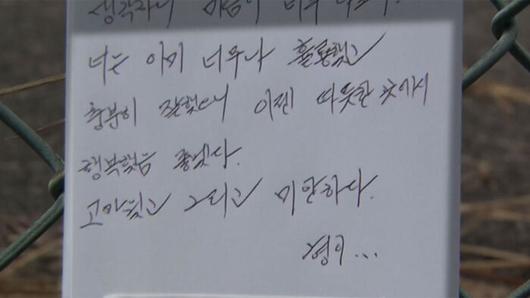 생각하니 마음이 너무
너는 이미 너무나 훌륭했고
충분히 잘했으니 이젠 따뜻한 곳에서
행복했음 좋겠다.
고마웠고 그리고 미안하다.
형이...